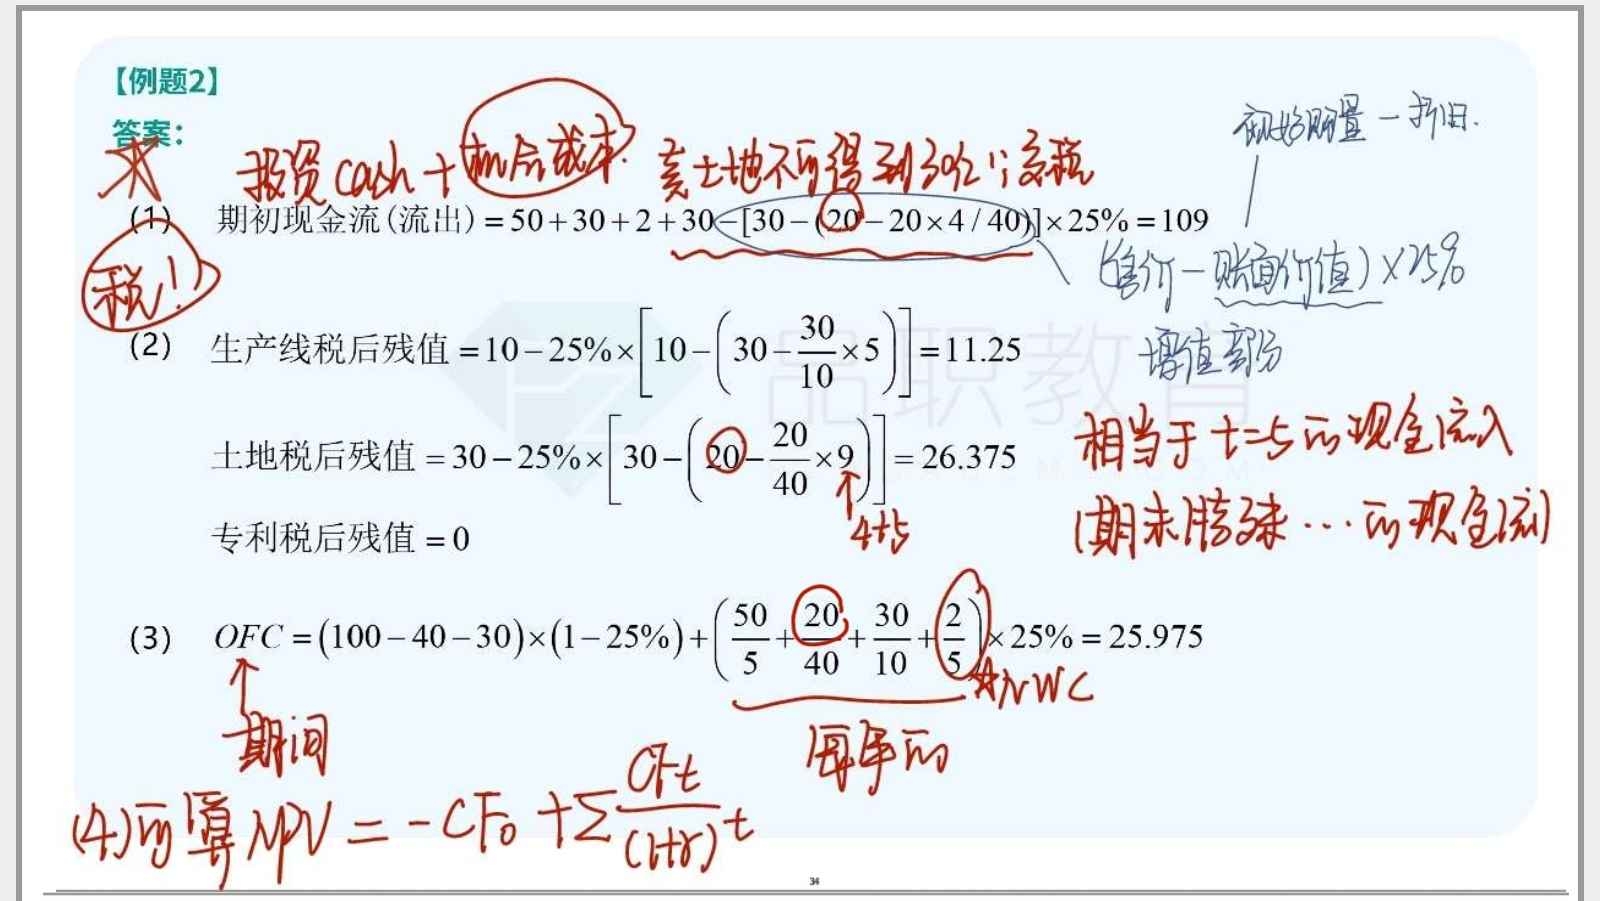 【例题2】
答案：
初始购置－折旧.
投资cash＋机会成本. 卖土地不可得到30亿，交税
(1) 期初现金流(流出)＝50＋30＋2＋30－[30－(20－20×4/40)]×25%＝109
税!!
(售价－账面价值)×25%
增值部分
(2) 生产线税后残值＝10－25%×[10－(30－30/10×5)]＝11.25
相当于t=5的现金流入
土地税后残值＝30－25%×[30－(20－20/40×9)]＝26.375
4+5
(期末特殊…的现金流)
专利税后残值＝0
(3) OFC＝(100－40－30)×(1－25%)＋(50/5＋20/40＋30/10＋2/5)×25%＝25.975
NWC
期间
每年的
(4)可算NPV＝－CF₀＋Σ CFt/(1+r)^t
品职教育
34